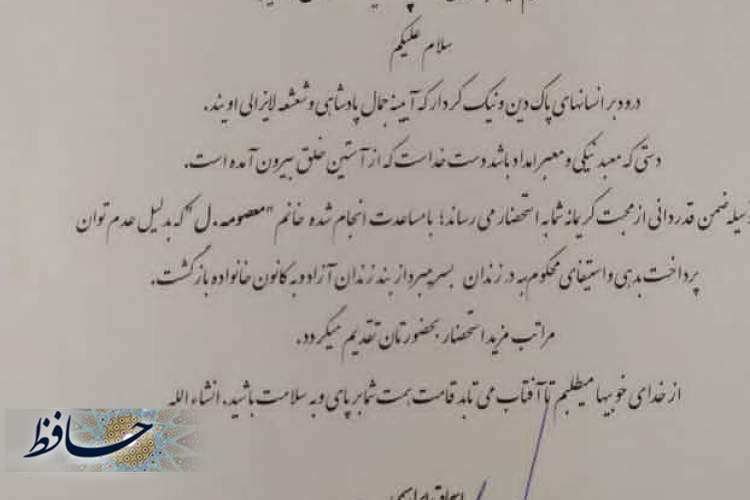 سلام علیکم
درود بر انسانهای پاک دین و نیک کردار که آیینه جمال پادشاهی و شعشعه لایزالی اویند.
دستی که معبد نیکی و معبر امداد باشد دست خداست که از آستین خلق بیرون آمده است.
وسیله ضمن قدردانی از محبت کریمانه شما به استحضار می رساند؛ با مساعدت انجام شده خانم "معصومه.ل" که بدلیل عدم توان
پرداخت بدهی و استیفای محکوم به در زندان بسر میبرد از بند زندان آزاد و به کانون خانواده بازگشت.
مراتب مزید استحضار بحضورتان تقدیم میگردد.
از خدای خوبیها میطلبم تا آفتاب می تابد قامت همت شما بر پای و به سلامت باشید. انشاء الله
حافظ